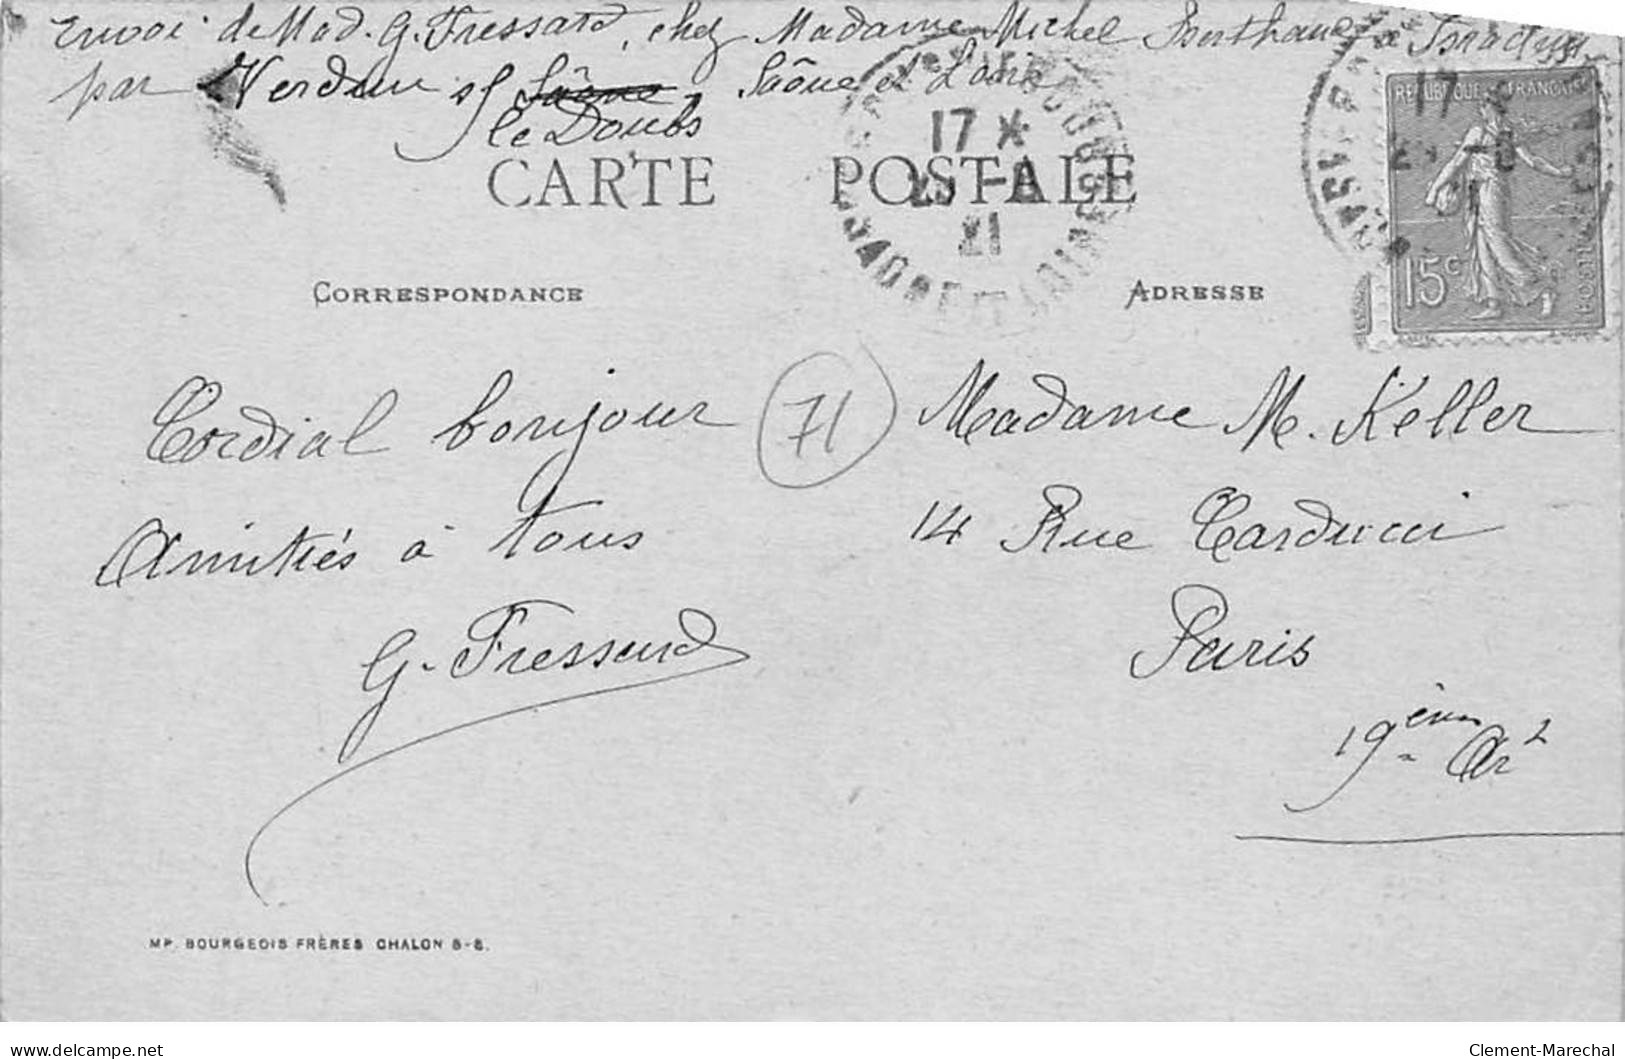 Envoi de Mad. G. Fressard, chez Madame Michel
par Verdun s/ Saône, Saône et Loire
le Doubs
CARTE POSTALE
17 *
21
REPUBLIQUE FRANÇAISE
17
15c
CORRESPONDANCE
ADRESSE
Cordial bonjour
Amitiés à tous
G. Fressard
71
Madame M. Keller
14 Rue Carducci
Paris
19ème Ar
IMP. BOURGEOIS FRÈRES CHALON S-S.
delcampe.net
Clement-Marechal